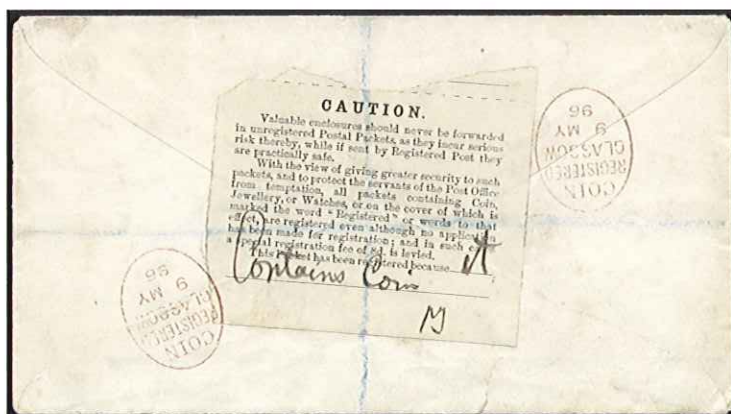 CAUTION.
Valuable enclosures should never be forwarded
in unregistered Postal Packets, as they incur serious
risk thereby, while if sent by Registered Post they
are practically safe.
With the view of giving greater security to such
packets, and to protect the servants of the Post Office
from temptation, all packets containing Coin,
Jewellery, or Watches, or on the cover of which is
marked the word "Registered" or words to that
effect, are registered even although no application
has been made for registration; and in such
a special registration fee of 8d. is levied.
This Packet has been registered because it
Contains Coin
COIN
REGISTERED
GLASGOW
9 MY
96
COIN
REGISTERED
GLASGOW
9 MY
96